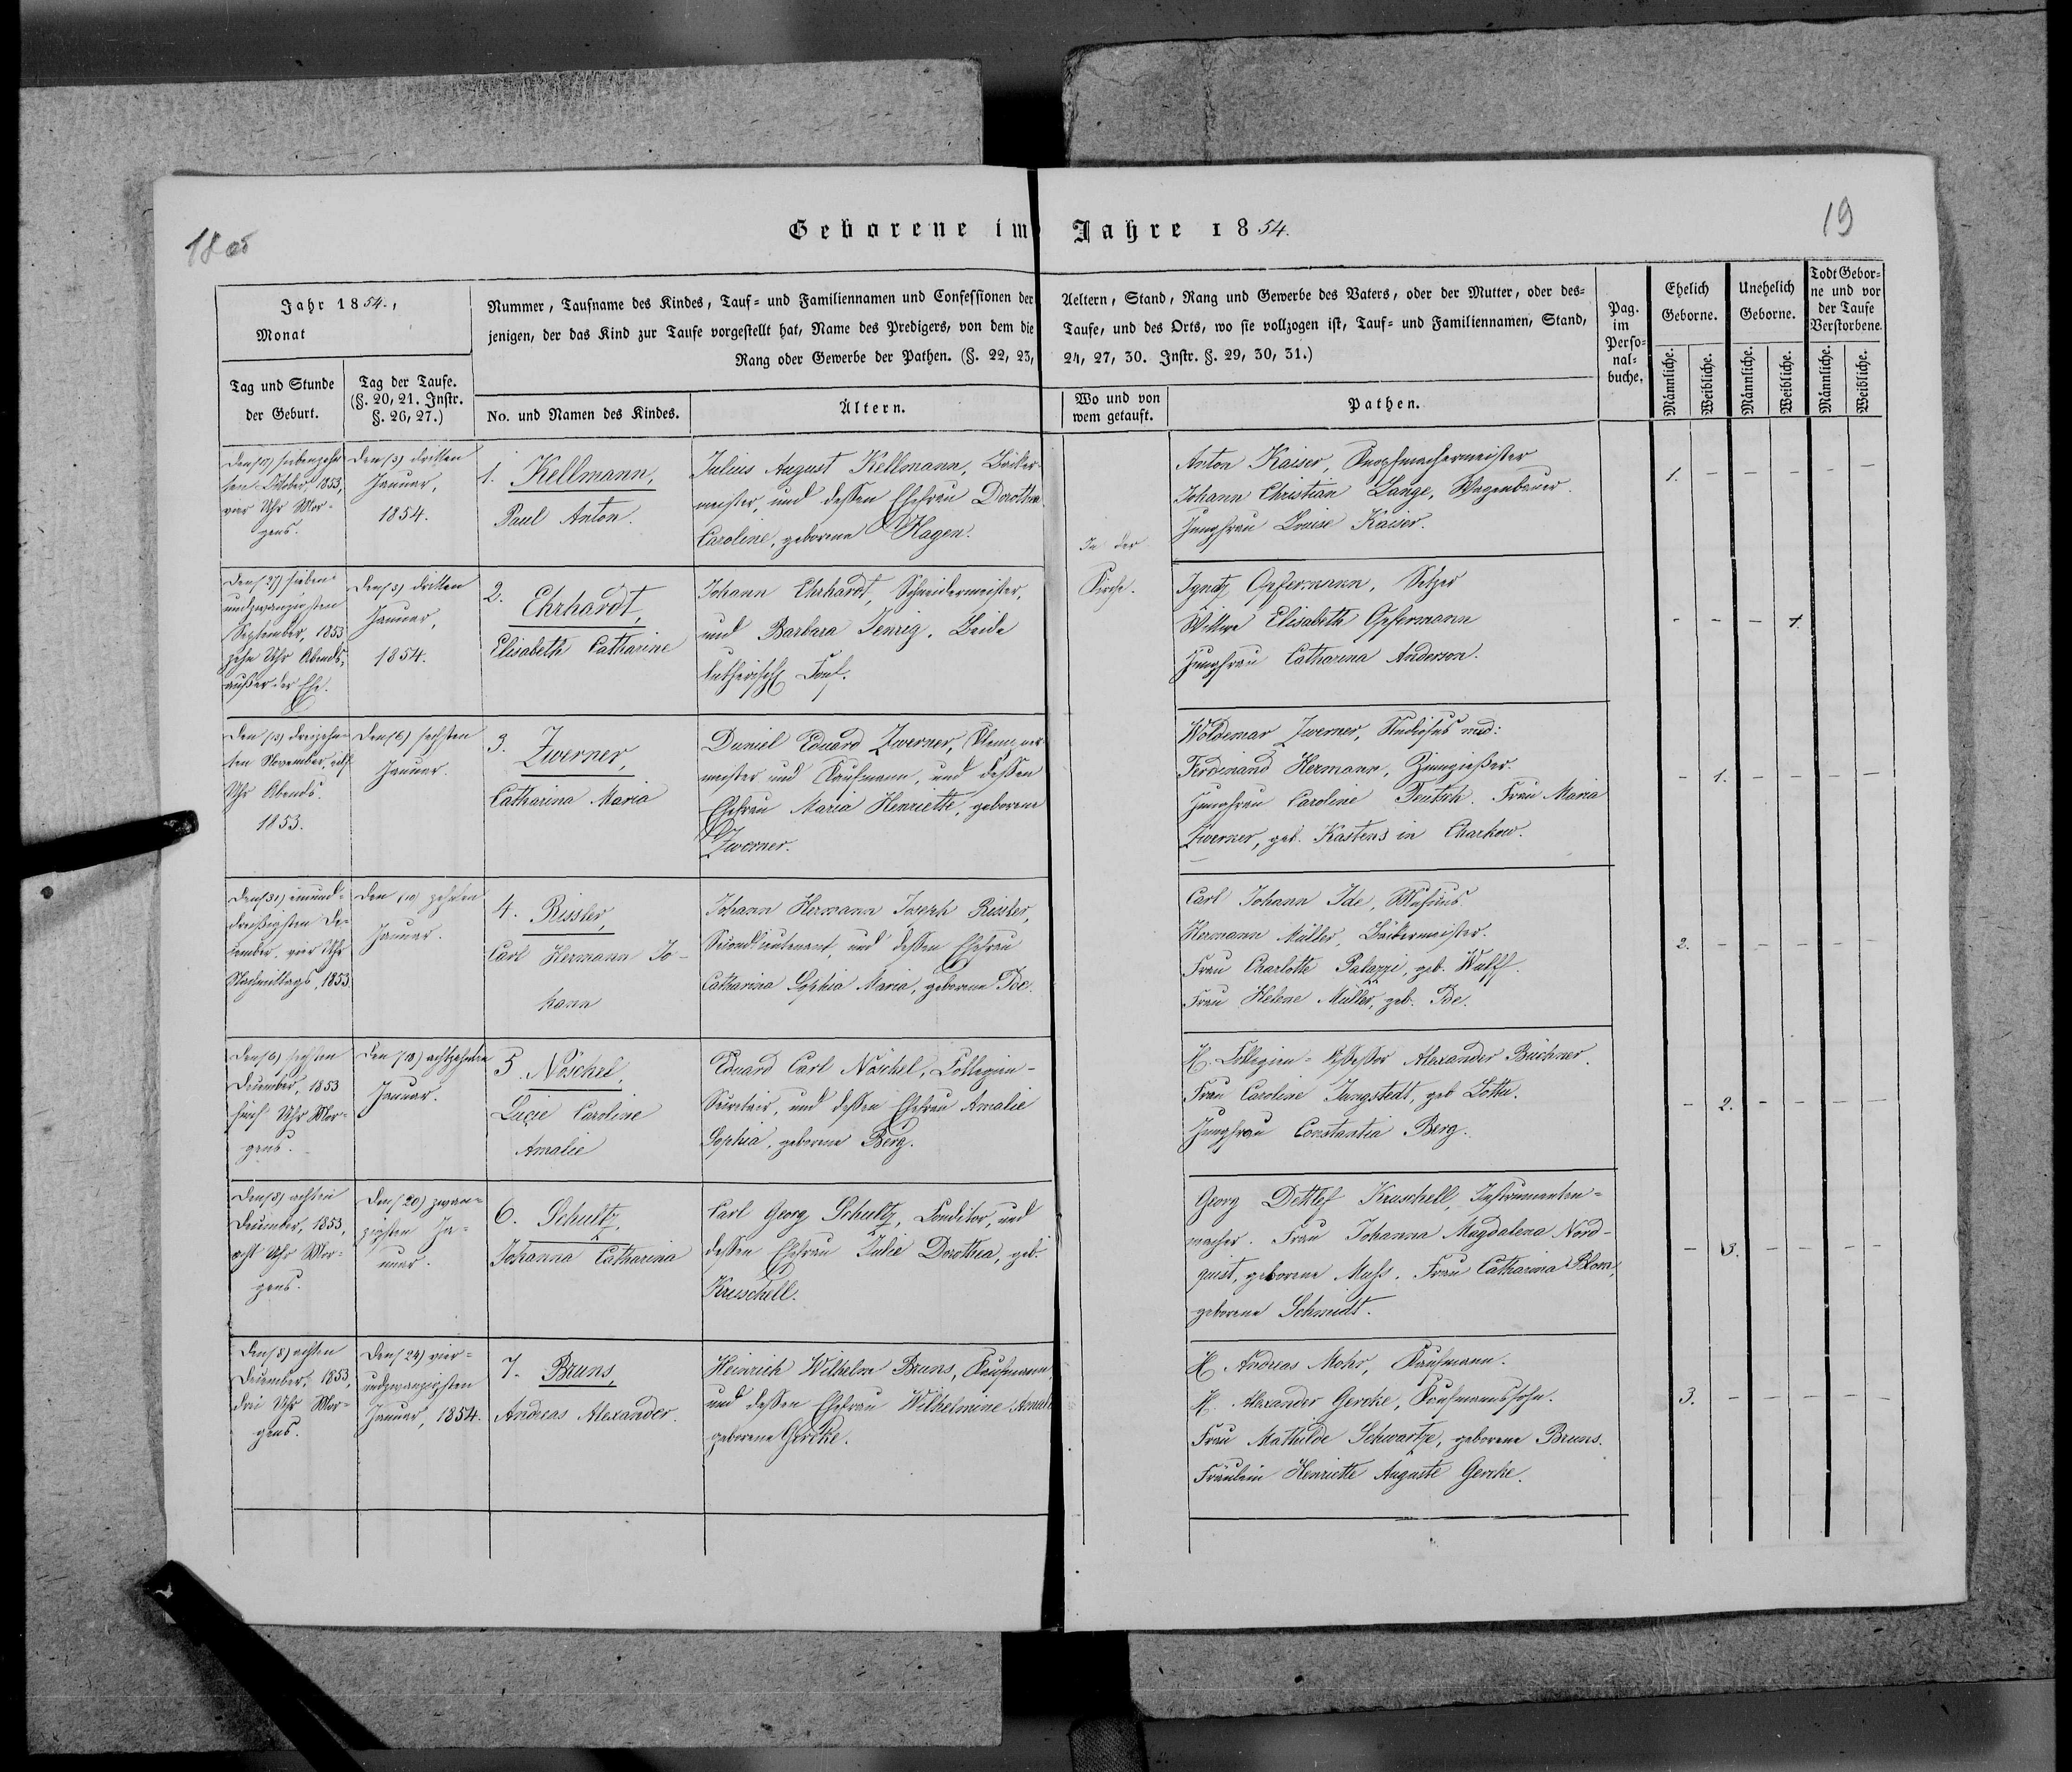 Geborene im Jahre 1854.
19
Jahr 1854.,
Monat
Nummer, Taufname des Kindes, Tauf- und Familiennamen und Confessionen der Aeltern, Stand, Rang und Gewerbe des Vaters, oder der Mutter, oder des-
jenigen, der das Kind zur Taufe vorgestellt hat, Name des Predigers, von dem die Taufe, und des Orts, wo sie vollzogen ist, Tauf- und Familiennamen, Stand,
Rang oder Gewerbe der Pathen. (§. 22, 23, 24, 27, 30. Instr. §. 29, 30, 31.)
Pag.
im
Perso-
nal-
buche.
Ehelich
Geborne.
Unehelich
Geborne.
Todt Gebor-
ne und vor
der Taufe
Verstorbene.
Tag und Stunde
der Geburt.
Tag der Taufe.
(§. 20, 21. Instr.
§. 26, 27.)
No. und Namen des Kindes.
Ältern.
Wo und von
wem getauft.
Pathen.
Männliche.
Weibliche.
Männliche.
Weibliche.
Männliche.
Weibliche.
Den (17) siebenzehn-
ten October, 1853,
vier Uhr Mor-
gens.
Den (3) dritten
Januar,
1854.
1. Kellmann,
Paul Anton.
Julius August Kellmann, Bäcker-
meister, und dessen Ehefrau Dorothea
Caroline, geborene Hagen.
In der
Kirche.
Anton Kaiser, Knopfmachermeister
Johann Christian Lange, Wagenbauer.
Jungfrau Louise Kaiser.
1. – – – – –
Den (27) sieben-
undzwanzigsten
September, 1853
zehn Uhr Abends,
außer der Ehe.
Den (3) dritten
Januar,
1854.
2. Ehrhardt,
Elisabeth Catharine
Johann Ehrhardt, Schneidermeister,
und Barbara Beide
lutherisch Conf.
Ignatz Opfermann, Setzer
Wittwe Elisabeth Opfermann
Jungfrau Catharina Anderson.
– – – 1.
Den (13) dreizehn-
ten November, eilf
Uhr Abends.
1853.
Den (6) sechsten
Januar.
3. Zwerner,
Catharina Maria
Daniel Eduard Zwerner, Klempner-
meister und Kaufmann, und dessen
Ehefrau Maria Henriette, geborene
Zwerner.
Woldemar Zwerner, Studiosus med:
Ferdinand Hermann, Zinngießer.
Jungfrau Caroline Teutsch. Frau Maria
Zwerner, geb. Kastens in Charkow.
– 1. – – – –
Den (31) einund-
dreißigsten De-
cember, vier Uhr
Nachmittags, 1853.
Den (10) zehnten
Januar.
4. Rissler,
Carl Hermann Jo-
hann
Johann Hermann Joseph Rissler,
Secondlieutenant, und dessen Ehefrau
Catharina Sophia Maria, geborene Ide.
Carl Johann Ide, Musicus.
Hermann Müller, Bäckermeister.
Frau Charlotte Palazzi, geb. Wulff.
Frau Helene Müller, geb. Ide.
2. – – – – –
Den (6) sechsten
December, 1853
fünf Uhr Mor-
gens.
Den (18) achtzehnten
Januar.
5. Nöschel,
Lucie Caroline
Amalie
Eduard Carl Nöschel, Collegien-
Secretair, und dessen Ehefrau Amalie
Sophia, geborene Berg.
H. Collegien-Assessor Alexander Büchner.
Frau Caroline Jungstedt, geb
Jungfrau Constantia Berg.
– 2. – – – –
Den (8) achten
December, 1853,
acht Uhr Mor-
gens.
Den (20) zwan-
zigsten Ja-
nuar.
6. Schultz,
Johanna Catharina
Carl Georg Schultz, Conditor, und
dessen Ehefrau Julie Dorothea, geb.
Kruschell.
Georg Dettlef Kruschell, Instrumenten-
macher. Frau Johanna Magdalena Nord-
quist, geborene Muss. Frau Catharina Blom,
geborene Schmidt.
– 3. – – – –
Den (8) achten
December, 1853,
drei Uhr Mor-
gens.
Den (24) vier-
undzwanzigsten
Januar, 1854.
7. Bruns,
Andreas Alexander.
Heinrich Wilhelm Bruns, Kaufmann,
und dessen Ehefrau Wilhelmine Amalie
geborene Gercke.
H. Andreas Mohr, Kaufmann.
H. Alexander Gercke, Kaufmannssohn.
Frau Mathilde Schwartze, geborene Bruns.
Fräulein Henriette Auguste Gercke.
3. – – – – –